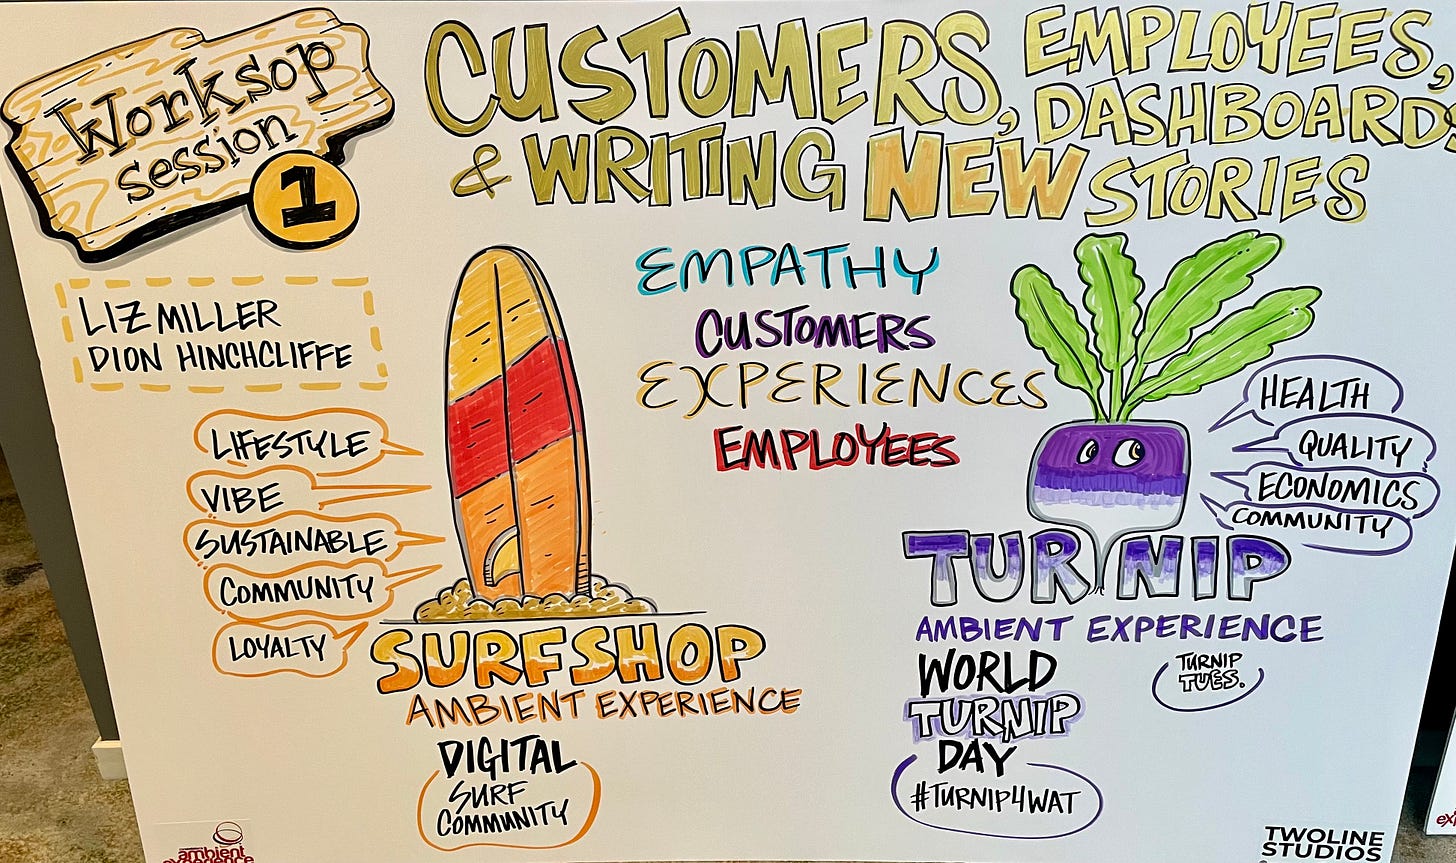 Worksop
session
1
CUSTOMERS, EMPLOYEES,
DASHBOARDS
& WRITING NEW STORIES
LIZ MILLER
DION HINCHCLIFFE
EMPATHY
CUSTOMERS
EXPERIENCES
EMPLOYEES
LIFESTYLE
VIBE
SUSTAINABLE
COMMUNITY
LOYALTY
SURFSHOP
AMBIENT EXPERIENCE
DIGITAL
SURF
COMMUNITY
HEALTH
QUALITY
ECONOMICS
COMMUNITY
TURNIP
AMBIENT EXPERIENCE
WORLD
TURNIP
DAY
#TURNIP4WAT
TURNIP
TUES.
ambient
experience
TWOLINE
STUDIOS